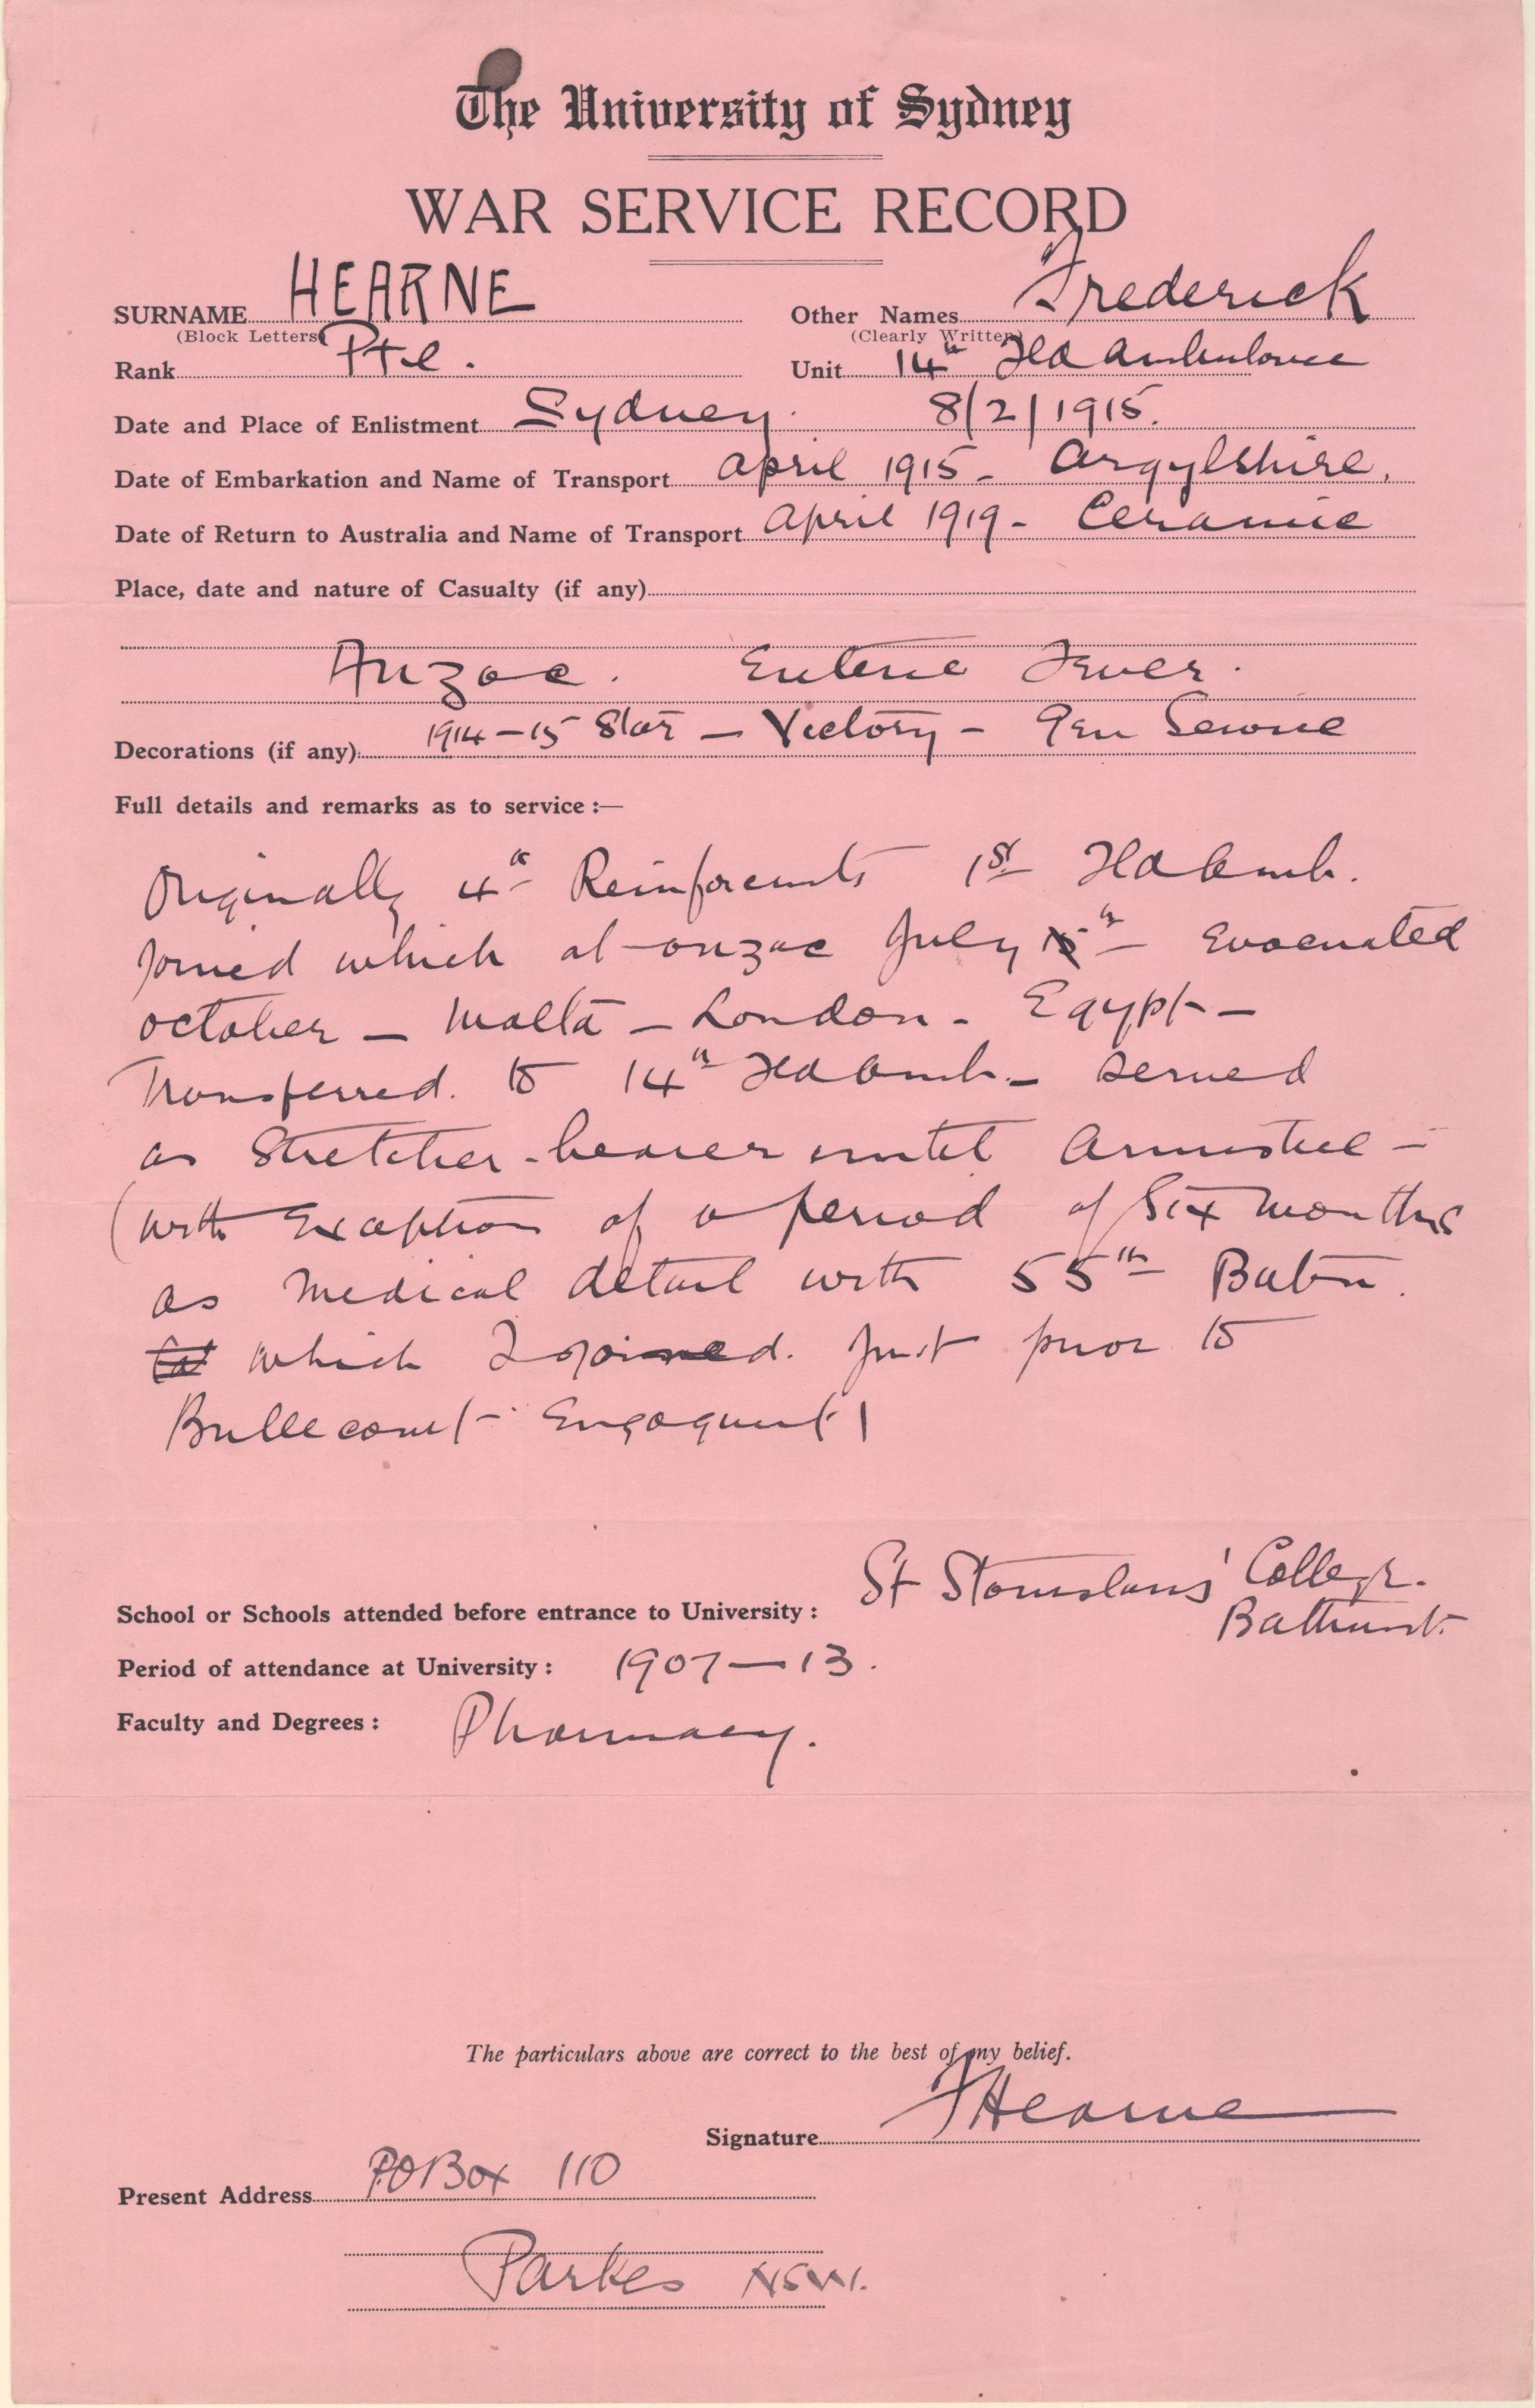 The University of Sydney
WAR SERVICE RECORD
SURNAME HEARNE Other Names Frederick
(Block Letters) (Clearly Written)
Rank Pte. Unit 14th Fld Ambulance
Date and Place of Enlistment Sydney. 8/2/1915.
Date of Embarkation and Name of Transport April 1915 - Argylshire.
Date of Return to Australia and Name of Transport April 1919 - Ceramic
Place, date and nature of Casualty (if any)
Anzac. Enteric Fever.
Decorations (if any) 1914-15 Star - Victory - Gen Service
Full details and remarks as to service :—
Originally 4th Reinforcements 1st Fld Amb.
Joined which at Anzac July - Evacuated
October - Malta - London - Egypt -
Transferred. to 14th Fld Amb. - served
as Stretcher-bearer until Armistice -
(with Exception of a period of Six months
as medical detail with 55th Batn.
which I joined. just prior to
Bullecourt Engagement)
School or Schools attended before entrance to University : St Stanislaus' College.
Bathurst.
Period of attendance at University : 1907-13.
Faculty and Degrees : Pharmacy.
The particulars above are correct to the best of my belief.
Signature FHearne
Present Address PO Box 110
Parkes NSW.